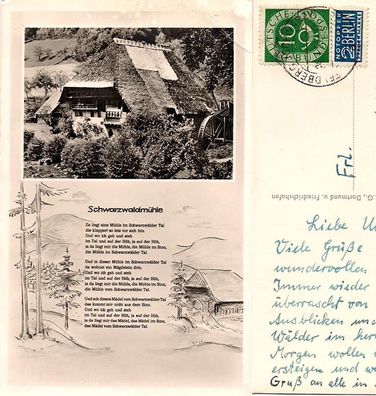 Schwarzwaldmühle
Es liegt eine Mühle im Schwarzwälder Tal
die klappert so leis vor sich hin.
Und wo ich geh und steh
im Tal und auf der Höh, ja auf der Höh,
da liegt mir die Mühle, die Mühle im Sinn,
die Mühle vom Schwarzwälder Tal.
Und in dieser Mühle im Schwarzwälder Tal
da wohnet ein Mägdelein drin.
Und wo ich geh und steh
im Tal und auf der Höh, ja auf der Höh,
da liegt mir die Mühle, die Mühle im Sinn,
die Mühle vom Schwarzwälder Tal.
Und seit dieses Mädel vom Schwarzwälder Tal
das kommt mir nicht aus dem Sinn.
Und wo ich geh und steh
im Tal und auf der Höh, ja auf der Höh,
da liegt mir das Mädel, das Mädel im Sinn,
das Mädel vom Schwarzwälder Tal.
DEUTSCHE BUNDESPOST
10
NOTOPFER
2 BERLIN
STEUERMARKE
FELDBERG
Frl.
G., Dortmund u. Friedrichshafen
Liebe
Viele Grüße
wundervollen
Immer wieder
überrascht von
Ausblicken und
Wälder im her
Morgen wollen
ersteigen und we
Gruß an alle in